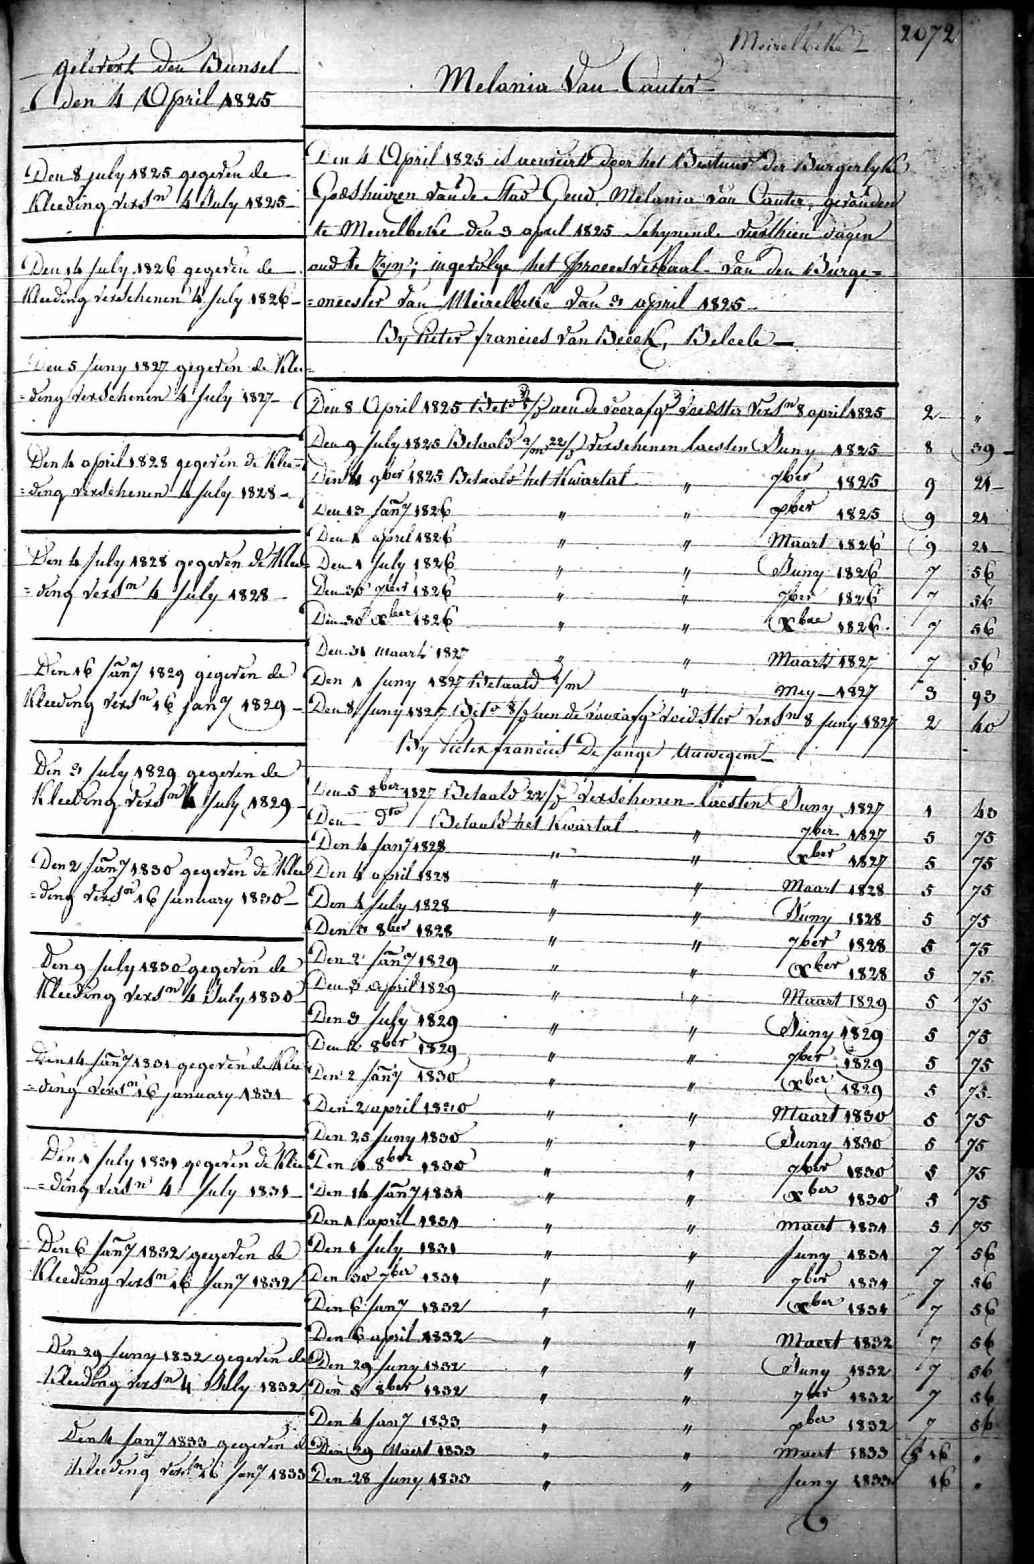 Meirelbeke 2072
gelevert den Bunsel
den 4 April 1825
Melania Van Cauter
Den 8 july 1825 gegeven de
Kleeding versn 4 July 1825
Den 14 July 1826 gegeven de
Kleeding verschenen 4 July 1826
Den 5 Juny 1827 gegeven de Klee=
=ding verschenen 4 July 1827
Den 4 april 1828 gegeven de Klee=
=ding verschenen 4 july 1828
Den 4 July 1828 gegeven de Klee=
=ding versn 4 July 1828
Den 16 Jany 1829 gegeven de
Kleeding versn 16 jany 1829
Den 3 July 1829 gegeven de
Kleeding versn 4 July 1829
Den 2 Jany 1830 gegeven de Klee
=ding versn 16 January 1830
Den 9 July 1830 gegeven de
Kleeding versn 4 July 1830
Den 14 Jany 1831 gegeven de Klee
=ding versn 16 january 1831
Den 1 July 1831 gegeven de Klee
=ding versn 4 July 1831
Den 6 Jany 1832 gegeven de
Kleeding versn 16 Jany 1832
Den 29 Juny 1832 gegeven de
Kleeding versn 4 July 1832
Den 4 Jany 1833 gegeven de
Kleeding versn 16 Jany 1833
Den 4 April 1825 is door het Bestuur der Burgerlyke
Godshuizen van de stad Gend, Melania van Cauter, gevonden
te Meirelbeke den 3 april 1825 schynende veerthien dagen
oud te zyn; ingevolge het procesverbaal van den Burge=
=meester van Meirelbeke van 3 april 1825
By Pieter francies van Beeck, Belcele
Den 8 April 1825 Bet° aen de voorafge voedster versn 8 april 1825 2 "
Den 9 July 1825 Betaald 2/m 22/d verschenen laesten Juny 1825 8 39
Den 4 9ber 1825 Betaald het Kwartal " 7ber 1825 9 21
Den 13 Jany 1826 " " xber 1825 9 21
Den 1 april 1826 " " Maart 1826 9 21
Den 1 July 1826 " " Juny 1826 7 56
Den 30 7ber 1826 " " 7ber 1826 7 56
Den 30 xber 1826 " " xber 1826 7 56
Den 31 maart 1827 " " Maart 1827 7 56
Den 1 Juny 1827 Betaald 2/m " Mey 1827 3 93
Den 8 Juny 1827 Bet° 8/d aen de voorafge voedster versn 8 Juny 1827 2 40
By Pieter francies De Jange Auwegem
Den 5 8ber 1827 Betaald 22/d verschenen laesten Juny 1827 1 43
Den dto Betaald het Kwartal " 7ber 1827 5 75
Den 4 Jany 1828 " " xber 1827 5 75
Den 4 april 1828 " " Maart 1828 5 75
Den 4 July 1828 " " Juny 1828 5 75
Den 3 8ber 1828 " " 7ber 1828 5 75
Den 2 Jany 1829 " " xber 1828 5 75
Den 3 April 1829 " " Maart 1829 5 75
Den 3 July 1829 " " Juny 1829 5 75
Den 2 8ber 1829 " " 7ber 1829 5 75
Den 2 Jany 1830 " " xber 1829 5 75
Den 2 april 1830 " " Maart 1830 5 75
Den 25 Juny 1830 " " Juny 1830 5 75
Den 1 8ber 1830 " " 7ber 1830 5 75
Den 14 Jany 1831 " " xber 1830 5 75
Den 1 april 1831 " " maert 1831 5 75
Den 1 July 1831 " " Juny 1831 7 56
Den 30 7ber 1831 " " 7ber 1831 7 56
Den 6 Jany 1832 " " xber 1831 7 56
Den 6 april 1832 " " Maert 1832 7 56
Den 29 Juny 1832 " " Juny 1832 7 56
Den 5 8ber 1832 " " 7ber 1832 7 56
Den 4 Jany 1833 " " xber 1832 7 56
Den 29 Maert 1833 " " Maert 1833 16 "
Den 28 Juny 1833 " " Juny 1833 16 "